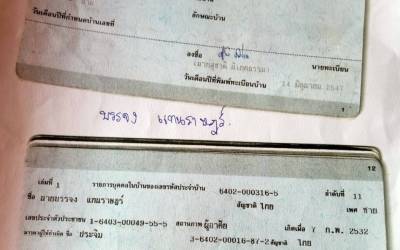 วันเดือนปีที่กำหนดบ้านเลขที่
ลักษณะบ้าน
ลงชื่อ นายทะเบียน
วันเดือนปีที่พิมพ์ทะเบียนบ้าน 14 มิถุนายน 2547
1
บรรจง แทนราษฎร์
12
เล่มที่ 1 รายการบุคคลในบ้านของเลขรหัสประจำบ้าน 6402-000316-5 ลำดับที่ 11
ชื่อ นายบรรจง แทนราษฎร์ สัญชาติ ไทย เพศ ชาย
เลขประจำตัวประชาชน 1-6403-00049-55-5 สถานภาพ ผู้อาศัย เกิดเมื่อ 7 ก.พ. 2532
มารดาผู้ให้กำเนิด ชื่อ ประจิม 3-6402-00016-87-2 สัญชาติ ไทย